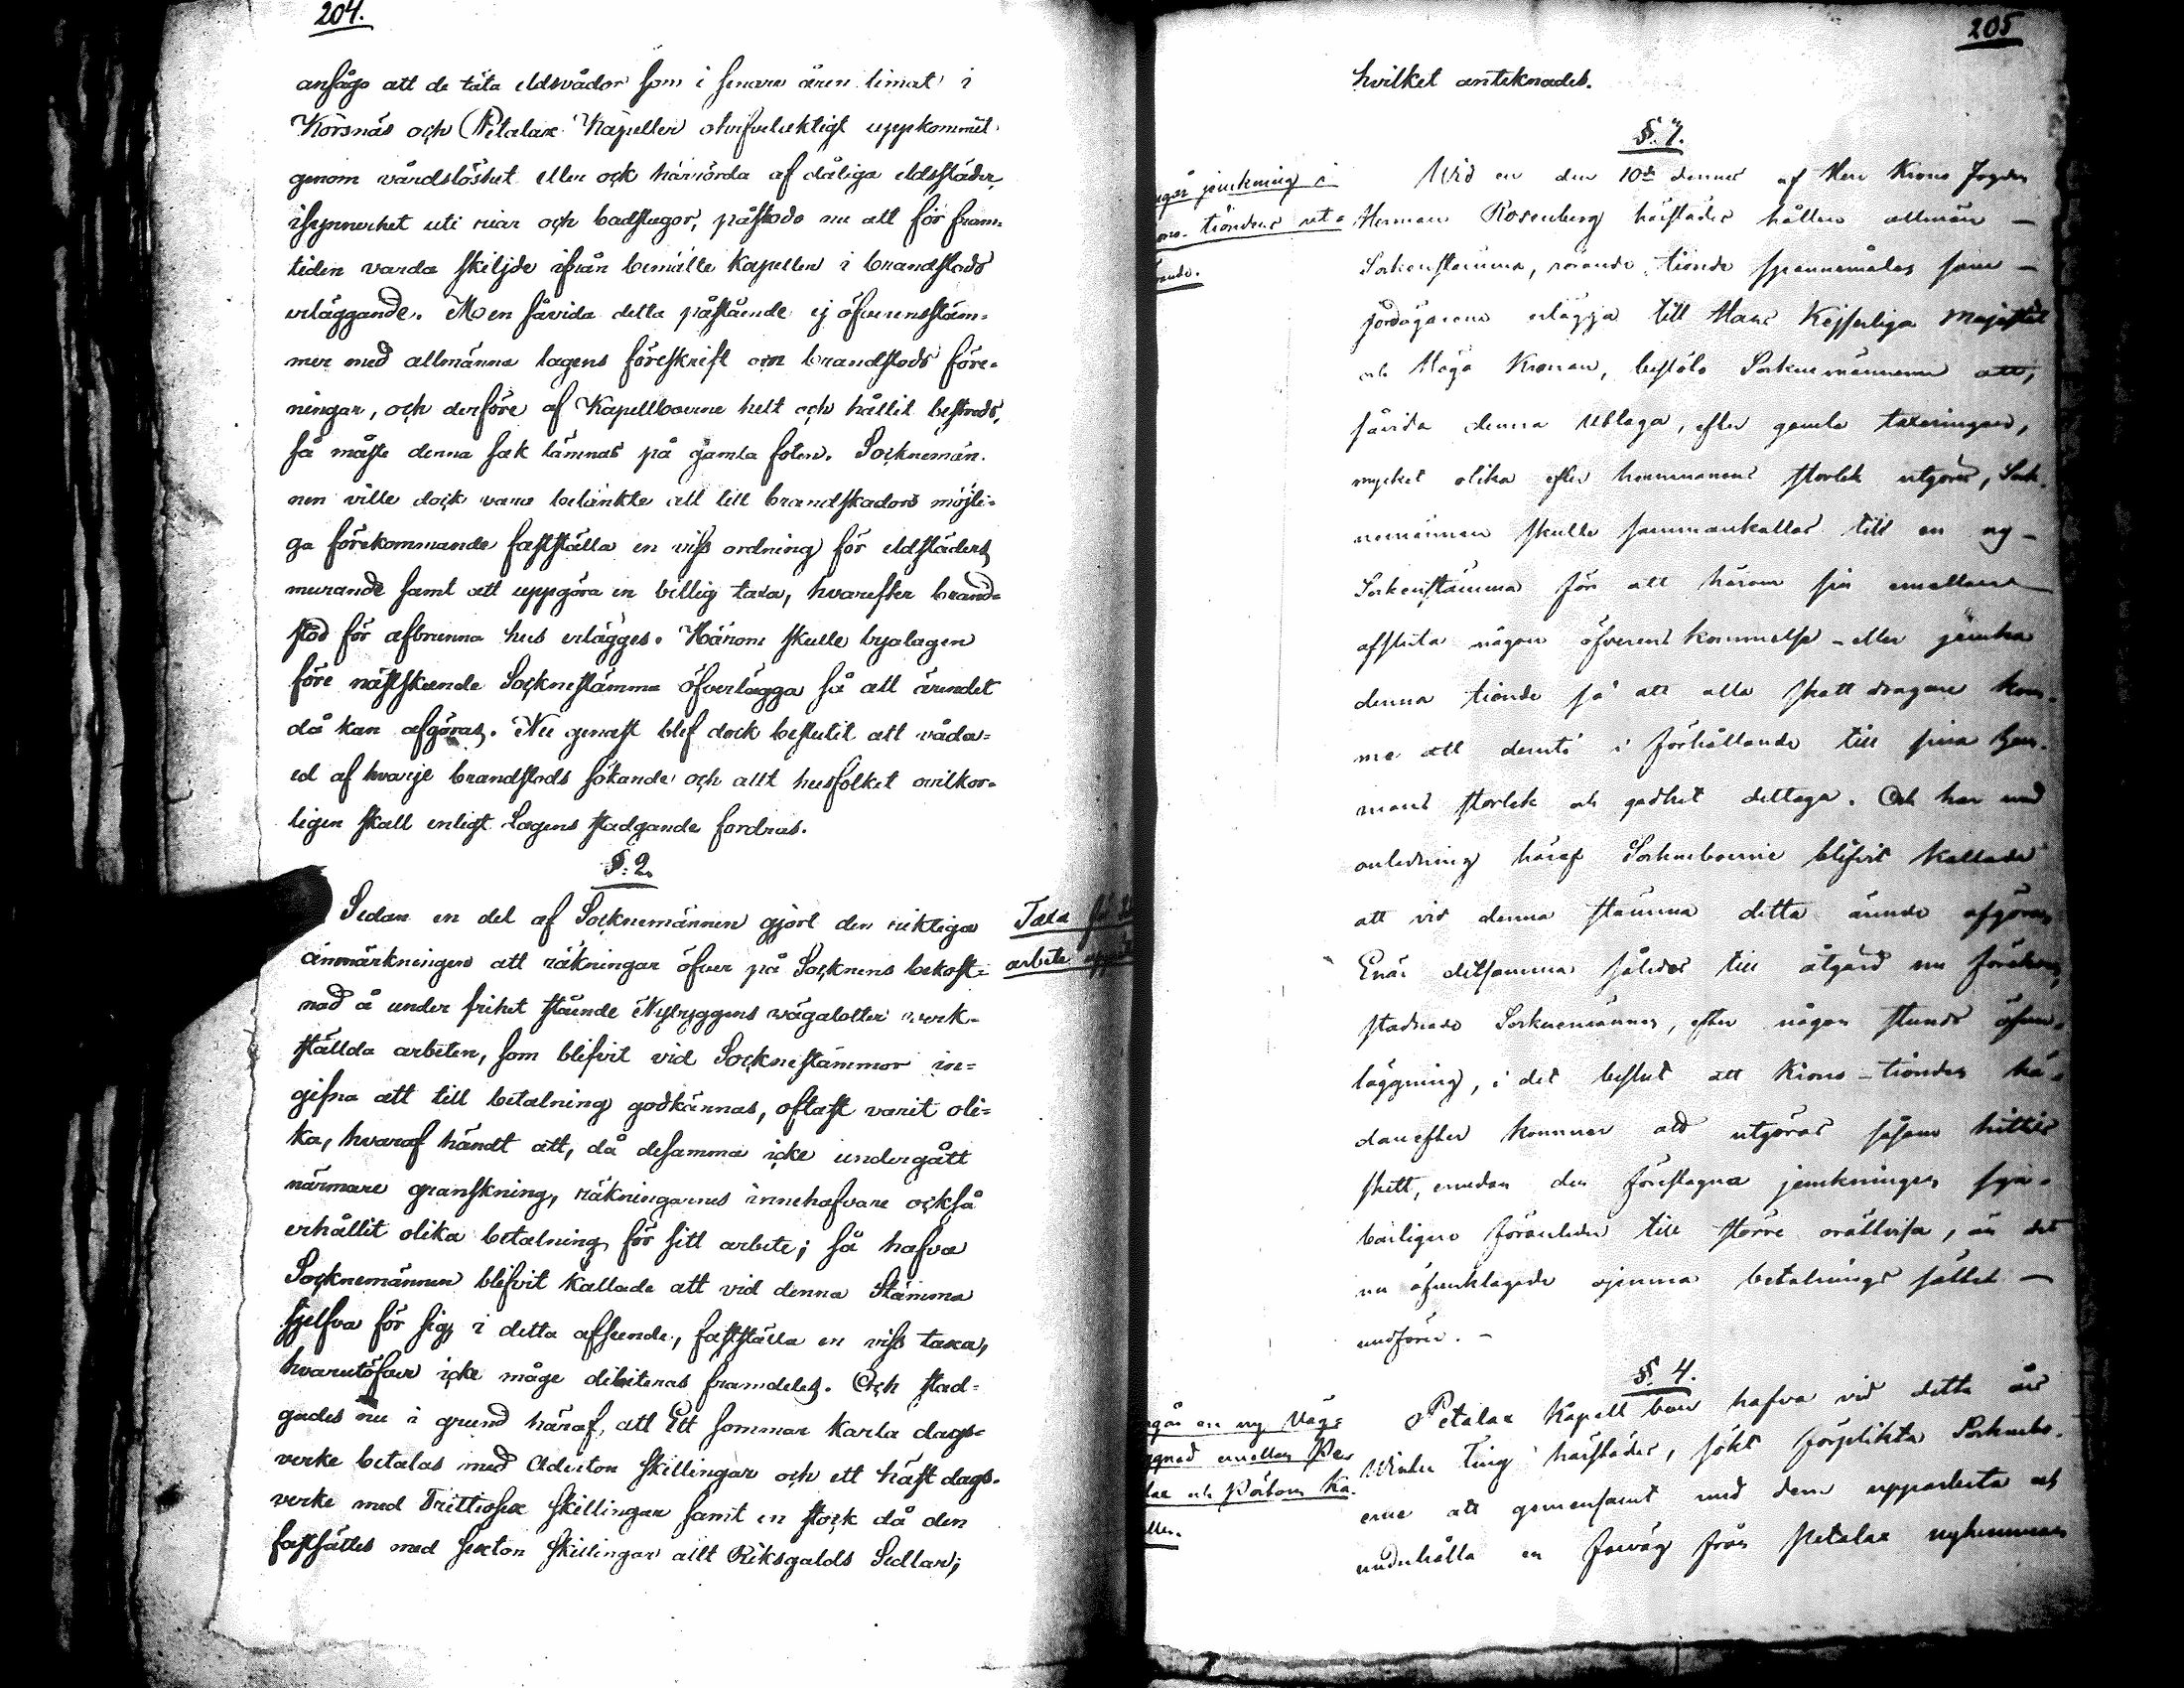 204.
ansågo att de täta eldsvådor som i senare åren timat i
Korsnäs och Petalax Kapeller otvifvelaktigt uppkommit
genom vårdslöshet eller ock härrörda af dåliga eldstäder,
isynnerhet uti riar och badstugor, påstodo nu att för fram-
tiden varda skiljde ifrån bemälte Kapeller i brandstods
erläggande. Men såvida detta påstående ej öfverensstäm-
mer med allmänna lagens föreskrift om brandstods före-
ningar, och derföre af Kapellboerne helt och hållit bestreds,
så måste denna sak lämnas på gamla foten. Socknemän-
nen ville dock vara betänkte att till brandskadors möjli-
ga förekommande fastställa en viss ordning för eldstäders
murande samt att uppgöra en billig taxa, hvarefter brand-
stod för afbrunna hus erlägges. Härom skulle byalagen
före nästskeende Socknestämma öfverlägga så att ärendet
då kan afgöras. Nu genast blef dock beslutit att våda-
ed af hvarje brandstods sökande och allt husfolket ovilkor-
ligen skall enligt Lagens stadgande fordras.
§: 2.
Sedan en del af Socknemännen gjort den riktiga
anmärkningen att räkningar öfver på Socknens bekost-
nad å under frihet stående Nybyggens vägalotter verk-
ställda arbeten, som blifvit vid Socknestämmor in-
gifna att till betalning godkännas, oftast varit oli-
ka, hvaraf händt att, då desamma icke undergått
närmare granskning, räkningarnes innehafvare också
erhållit olika betalning för sitt arbete; så hafva
Socknemännen blifvit kallade att vid denna Stämma
sjelfva för sig, i detta afseende, fastställa en viss taxa,
hvarutöfver icke måge debiteras framdeles. Och stad-
gades nu i grund häraf, att Ett sommar karla dags-
verke betalas med Aderton Skillingar och ett häst dags-
verke med Trittiosex Skillingar samt en stock då den
fastsättes med sexton Skillingar allt Riksgälds Sedlar;
Taxa för
arbete
205
hvilket anteknades.
§: 3.
Wid en den 10de dennes af Herr Krono Fogden
Herman Rosenberg härstädes hållen allmän -
Sockenstämma, rörande tionde spannemålen som -
jordägarena erlägga till Hans Kejserliga Majestät
och Höga Kronan, beslöto Sockenmännerne att,
såvida denna utlaga, efter gamla taxeringen,
mycket olika efter hemmanens storlek utgöres, Sock-
nemännen skulle sammankallas till en ny -
Sockenstämma för att härom sin emellan
afsluta någon öfverens kommelse - eller jämka
denna tionde så att alla skattdragare kom-
me att deruti i förhållande till sina hem-
mans storlek och godhet deltaga. Och har med
anledning häraf Socknebоerne blifvit kallade
att vid denna stämma detta ärende afgöra.
Enär detsamma således till åtgärd nu förehas,
stadnade Socknemännen, efter någon stunds öfver-
läggning, i det beslut att Krono-tionden hä-
danefter kommer att utgöras såsom hittils
skett, emedan den föreslagna jemkningen syn-
barligen föranleder till större orättvisa, än det
nu öfverklagade ojemna betalnings sättet -
medförer. -
§: 4.
Petalax Kapell boer hafva vid detta års
Winter Ting härstädes, sökt förplikta Socknebo-
erne att gemensamt med dem upparbeta och
underhålla en farväg från Petalax nyhemman
jemkning i
tiondens ut-
en ny Väg-
emellan Pe-
och Pörtom Ka-